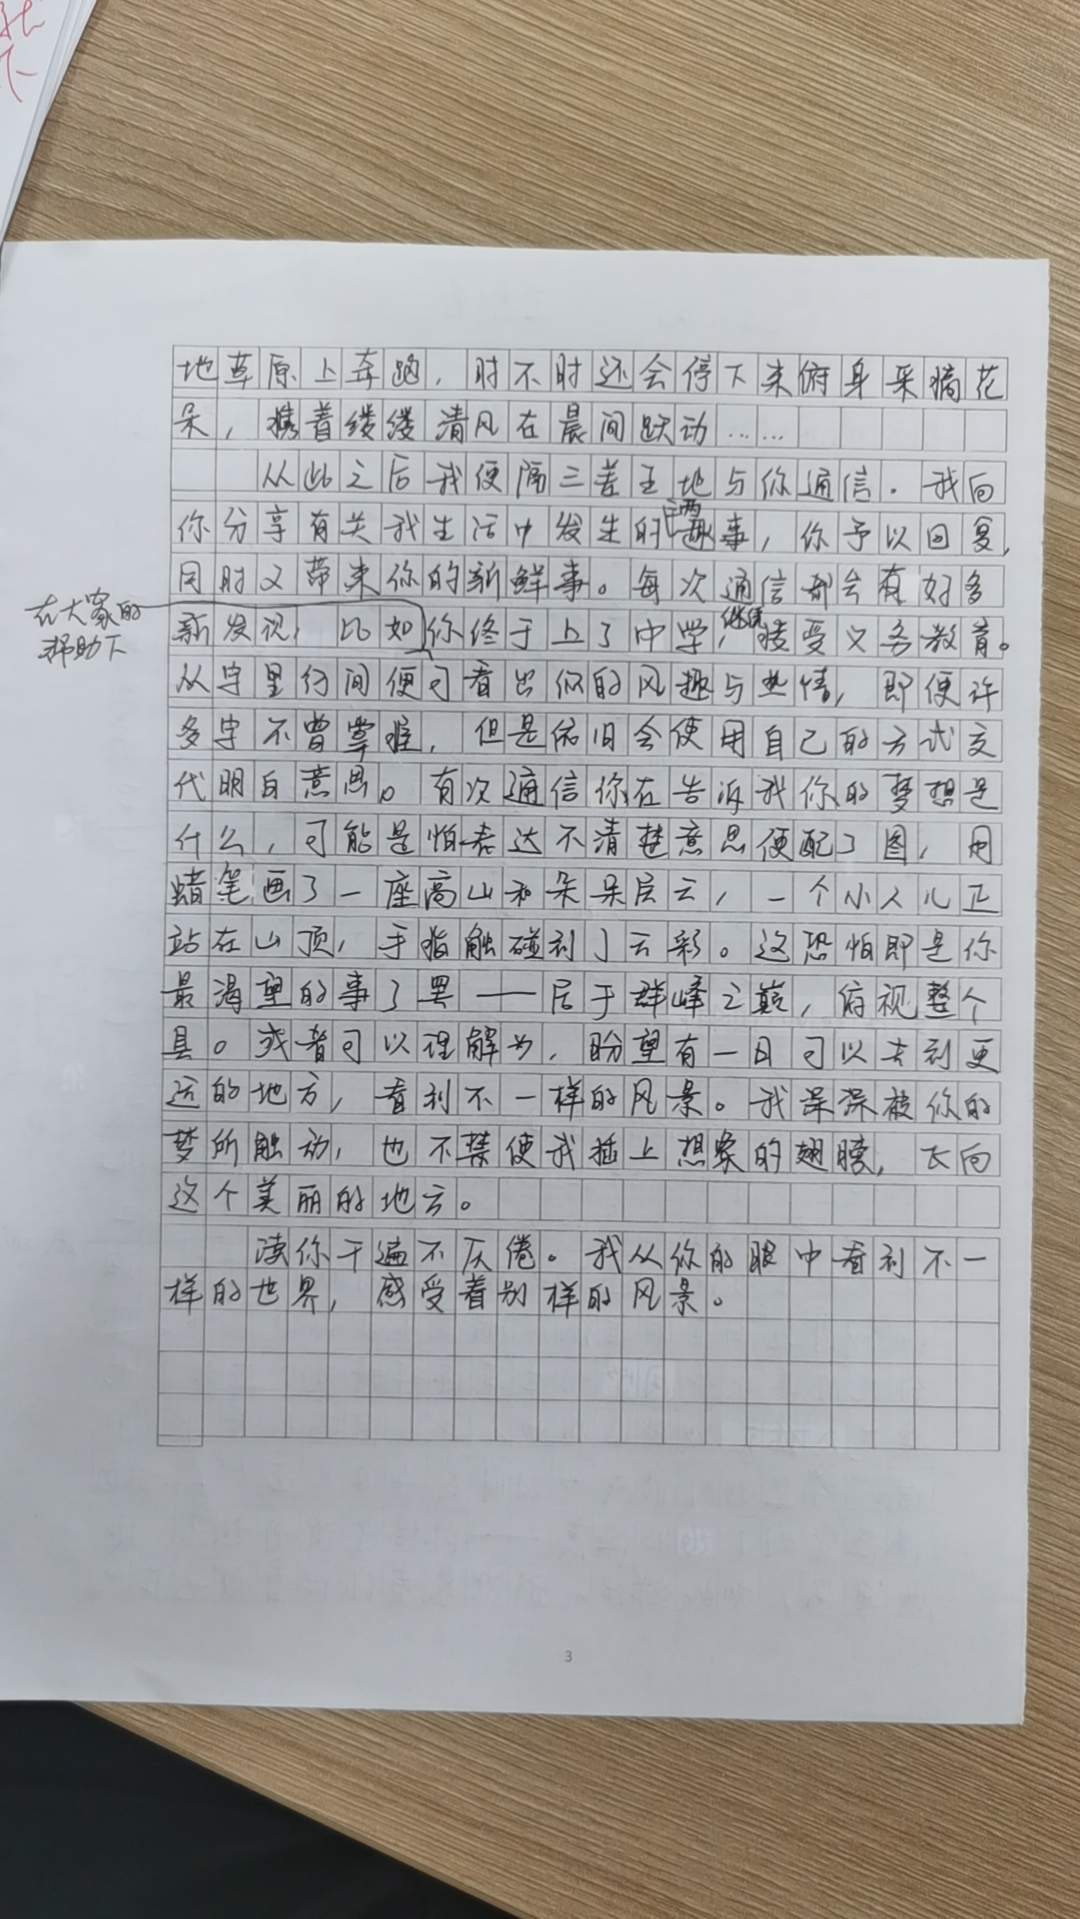 地草原上奔跑，时不时还会停下来俯身采摘花
朵，携着缕缕清风在晨间跃动……
从此之后我便隔三差五地与你通信。我向
你分享有关我生活中发生的趣事，你予以回复，
同时又带来你的新鲜事。每次通信都会有好多
在大家的
帮助下
新发现，比如你终于上了中学，继续接受义务教育。
从字里行间便可看出你的风趣与热情，即便许
多字不曾掌握，但是依旧会使用自己的方式交
代明白意思。有次通信你在告诉我你的梦想是
什么，可能是怕表达不清楚意思便配了图，用
蜡笔画了一座高山和朵朵层云，一个小人儿正
站在山顶，手指触碰到了云彩。这恐怕即是你
最渴望的事了罢——居于群峰之巅，俯视整个
县。或者可以理解为，盼望有一日可以去到更
远的地方，看到不一样的风景。我深深被你的
梦所触动，也不禁使我插上想象的翅膀，飞向
这个美丽的地方。
读你千遍不厌倦。我从你的眼中看到不一
样的世界，感受着别样的风景。
3